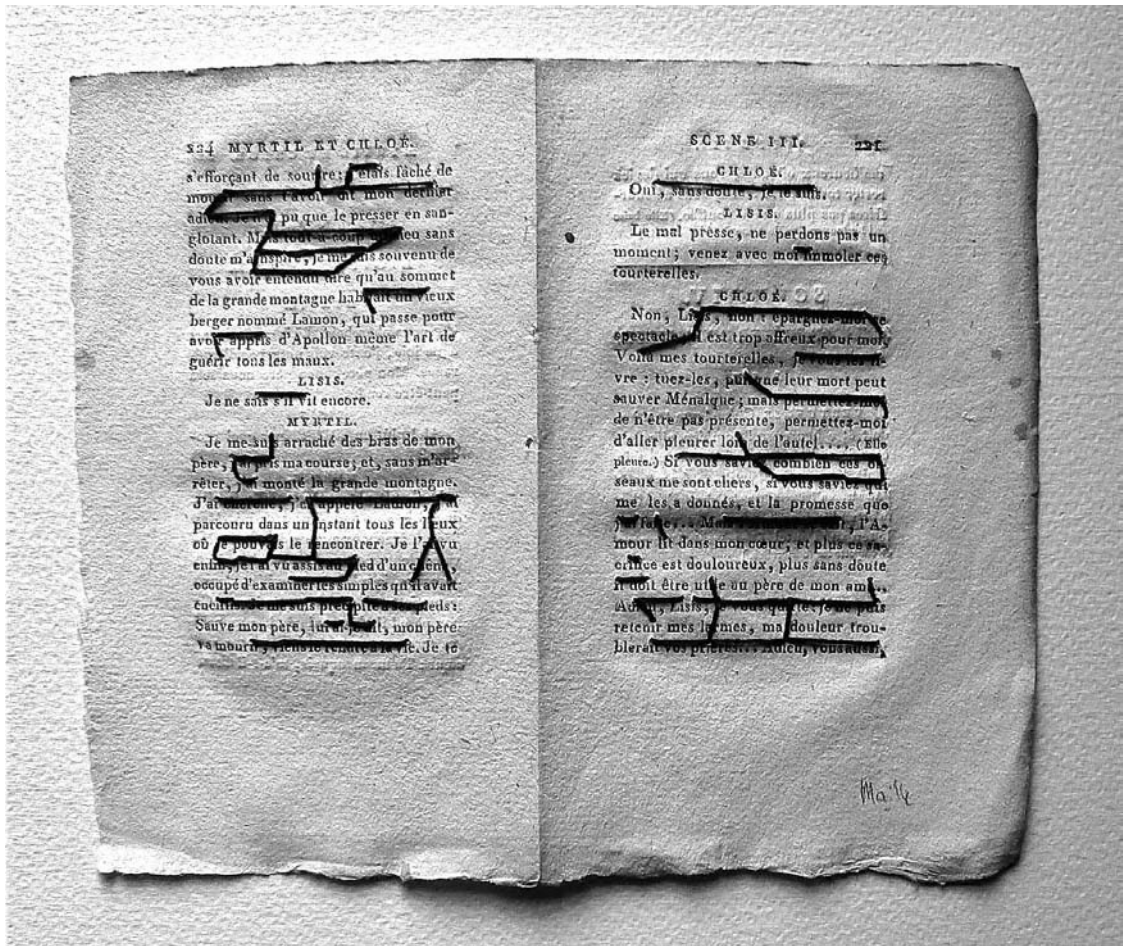 224 MYRTIL ET CHLOÉ.
s'efforçant de sourire: j'étais fâché de
mourir sans t'avoir dit mon dernier
adieu. Je n'ai pu que le presser en san-
glotant. Mais tout-à-coup un dieu sans
doute m'a inspiré, je me suis souvenu de
vous avoir entendu dire qu'au sommet
de la grande montagne habitait un vieux
berger nommé Lamon, qui passe pour
avoir appris d'Apollon même l'art de
guérir tous les maux.
LISIS.
Je ne sais s'il vit encore.
MYRTIL.
Je me suis arraché des bras de mon
père, j'ai pris ma course; et, sans m'ar-
rêter, j'ai monté la grande montagne.
J'ai cherché, j'ai appelé Lamon, j'ai
parcouru dans un instant tous les lieux
où je pouvais le rencontrer. Je l'ai vu
enfin, je l'ai vu assis au pied d'un chêne,
occupé d'examiner les simples qu'il avait
cueillis. Je me suis précipité à ses pieds:
Sauve mon père, lui ai-je dit, mon père
va mourir, viens le rendre à la vie. Je te
SCENE III. 225
CHLOÉ.
Oui, sans doute, je le suis.
LISIS.
Le mal presse, ne perdons pas un
moment; venez avec moi immoler ces
tourterelles.
CHLOÉ.
Non, Lisis, non: épargnez-moi ce
spectacle, il est trop affreux pour moi.
Voilà mes tourterelles, je vous les li-
vre: tuez-les, puisque leur mort peut
sauver Ménalque; mais permettez-moi
de n'être pas présente, permettez-moi
d'aller pleurer loin de l'autel.... (Elle
pleure.) Si vous saviez combien ces oi-
seaux me sont chers, si vous saviez qui
me les a donnés, et la promesse que
j'ai faite... Mais, l'A-
mour lit dans mon cœur, et plus ce sa-
crifice est douloureux, plus sans doute
il doit être utile au père de mon ami..
Adieu, Lisis; je vous quitte: je ne puis
retenir mes larmes, ma douleur trou-
blerait vos prières... Adieu, vous aussi,